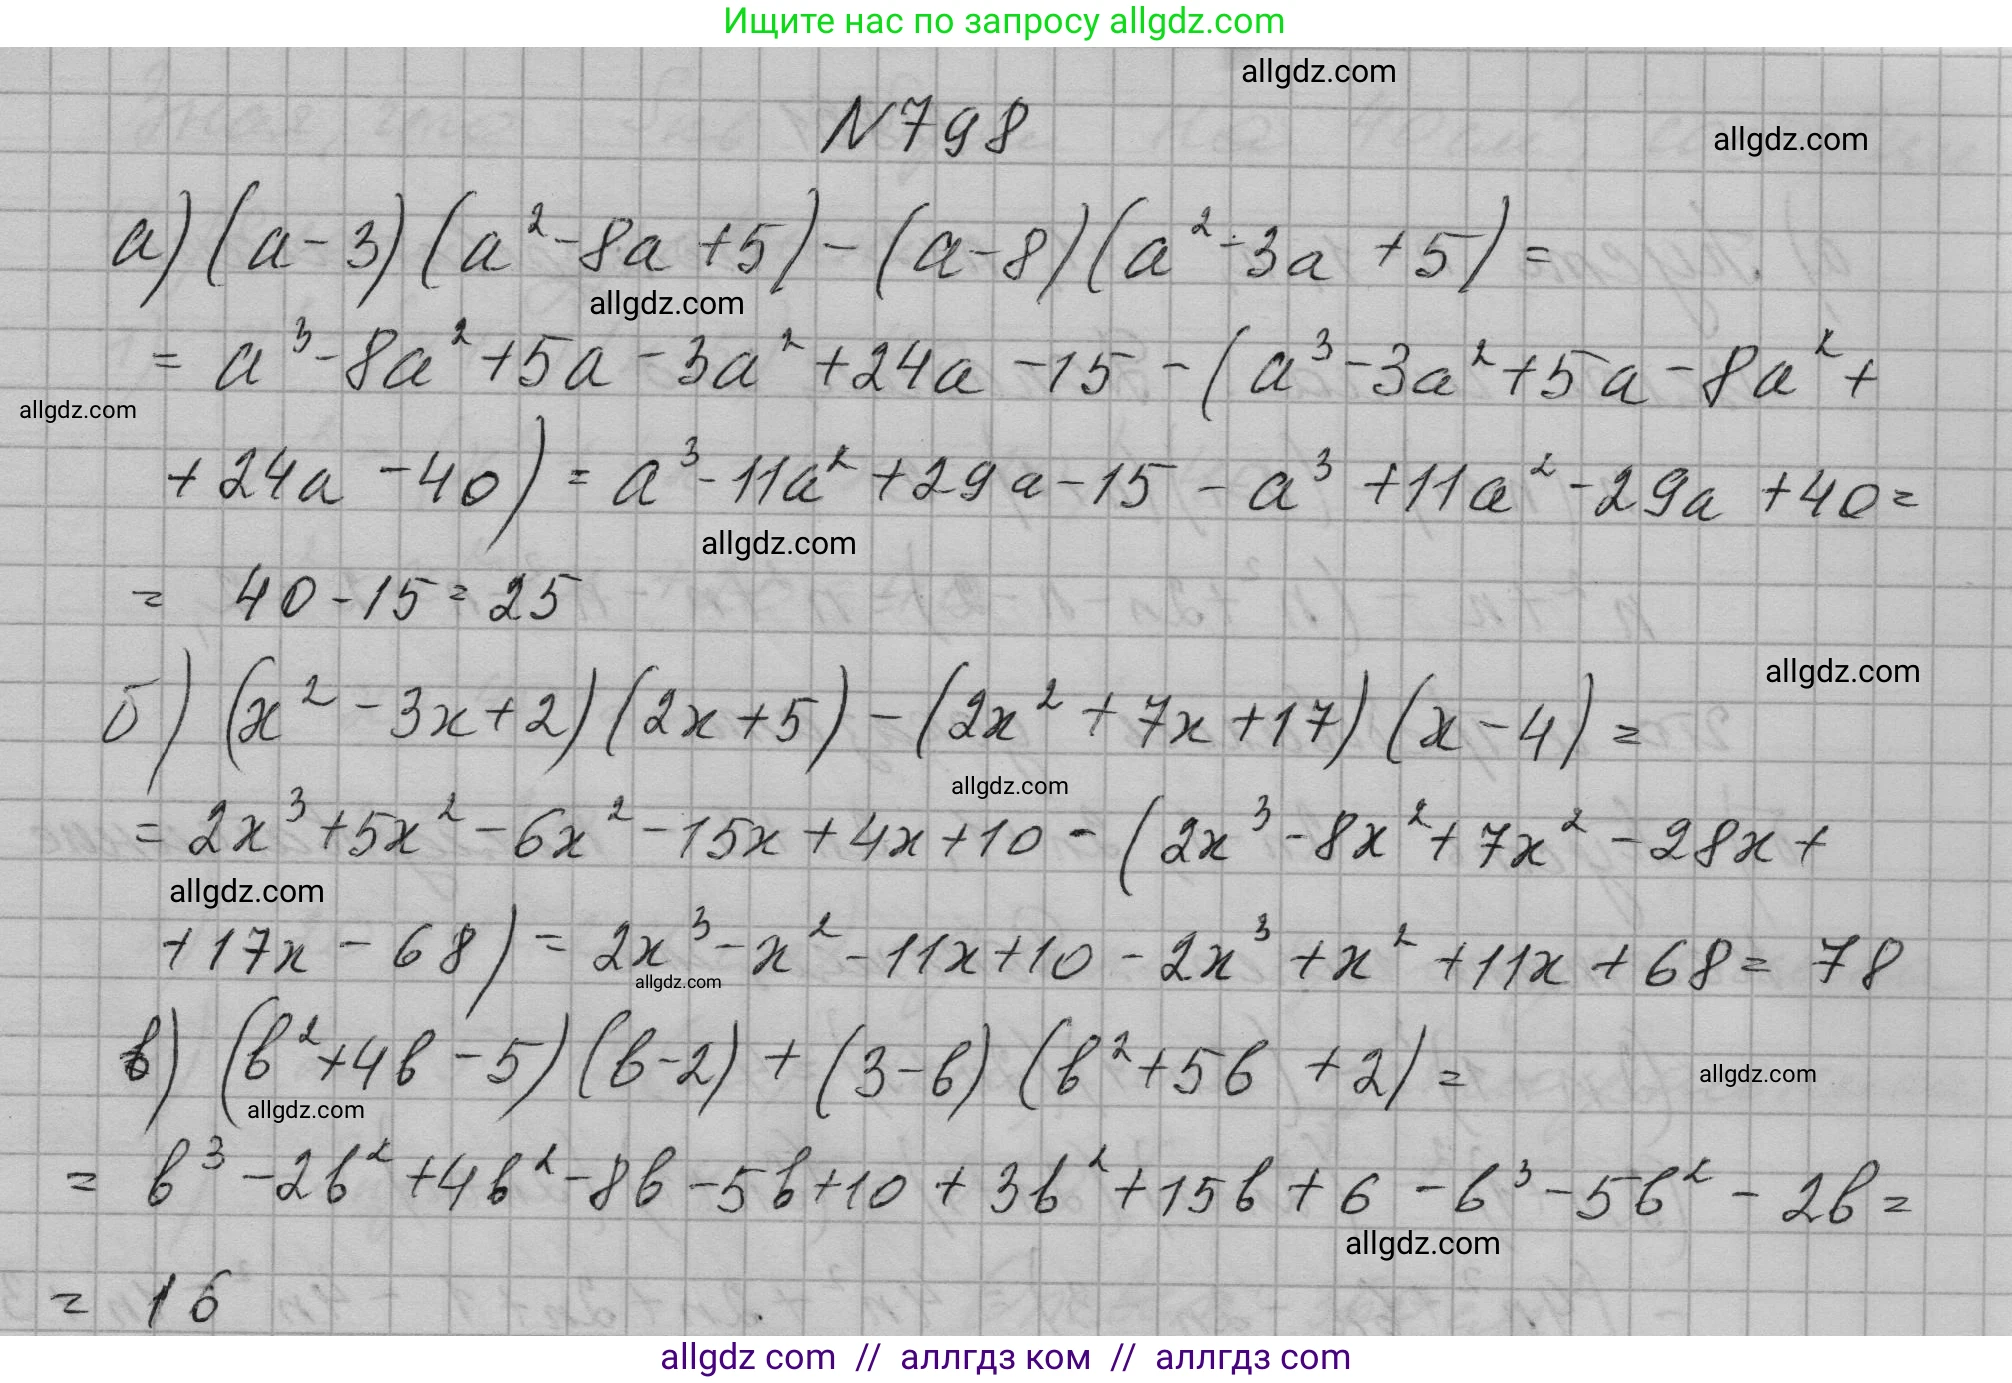 Ищите нас по запросу allgdz.com
allgdz.com
N798
allgdz.com
а) (a-3)(a²-8a+5)-(a-8)(a²-3a+5)=
allgdz.com
= a³-8a²+5a-3a²+24a-15-(a³-3a²+5a-8a²+
allgdz.com
+24a-40)=a³-11a²+29a-15-a³+11a²-29a+40=
allgdz.com
= 40-15=25
allgdz.com
б) (x²-3x+2)(2x+5)-(2x²+7x+17)(x-4)=
allgdz.com
= 2x³+5x²-6x²-15x+4x+10-(2x³-8x²+7x²-28x+
allgdz.com
+17x-68)=2x³-x²-11x+10-2x³+x²+11x+68=78
allgdz.com
в) (b²+4b-5)(b-2)+(3-b)(b²+5b+2)=
allgdz.com
allgdz.com
= b³-2b²+4b²-8b-5b+10+3b²+15b+6-b³-5b²-2b=
allgdz.com
= 16
allgdz com // аллгдз ком // аллгдз com